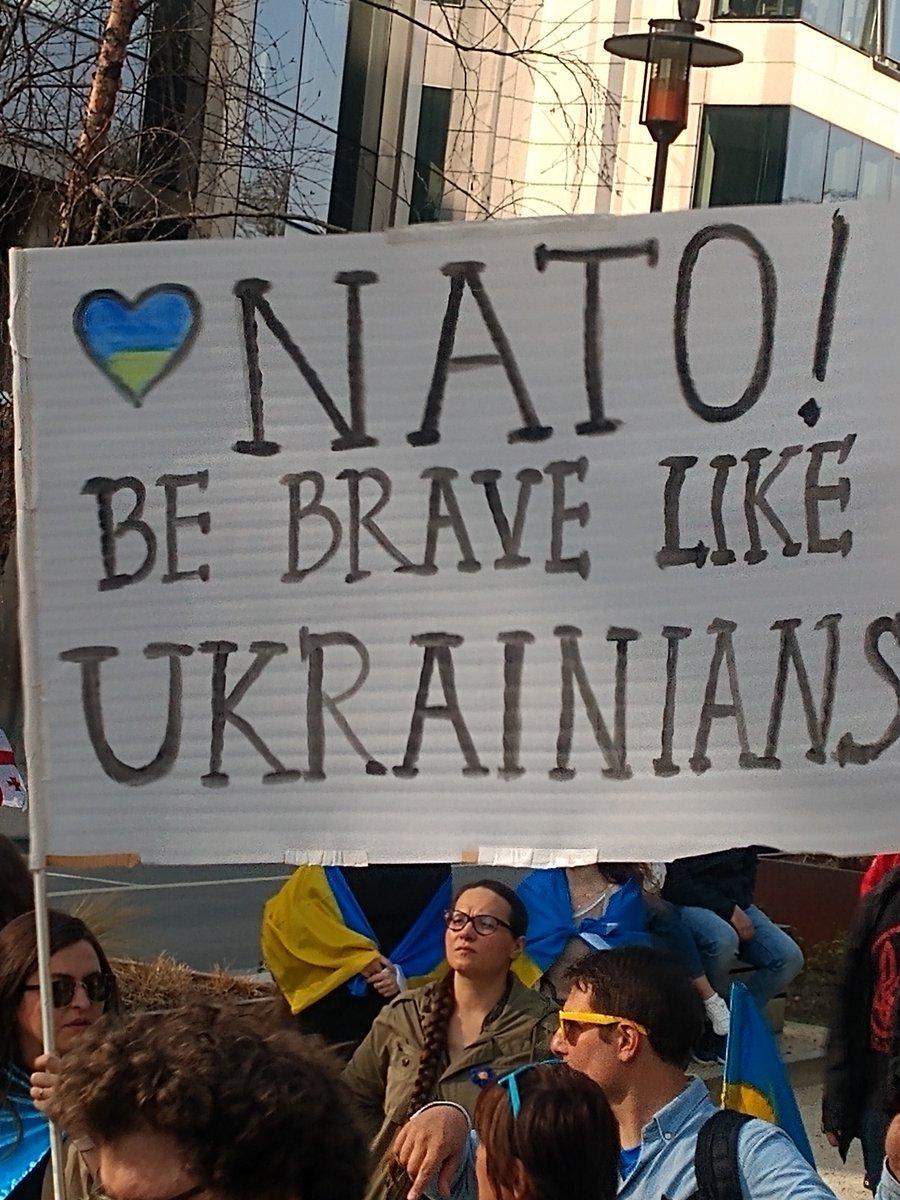 NATO!
BE BRAVE LIKE
UKRAINIANS